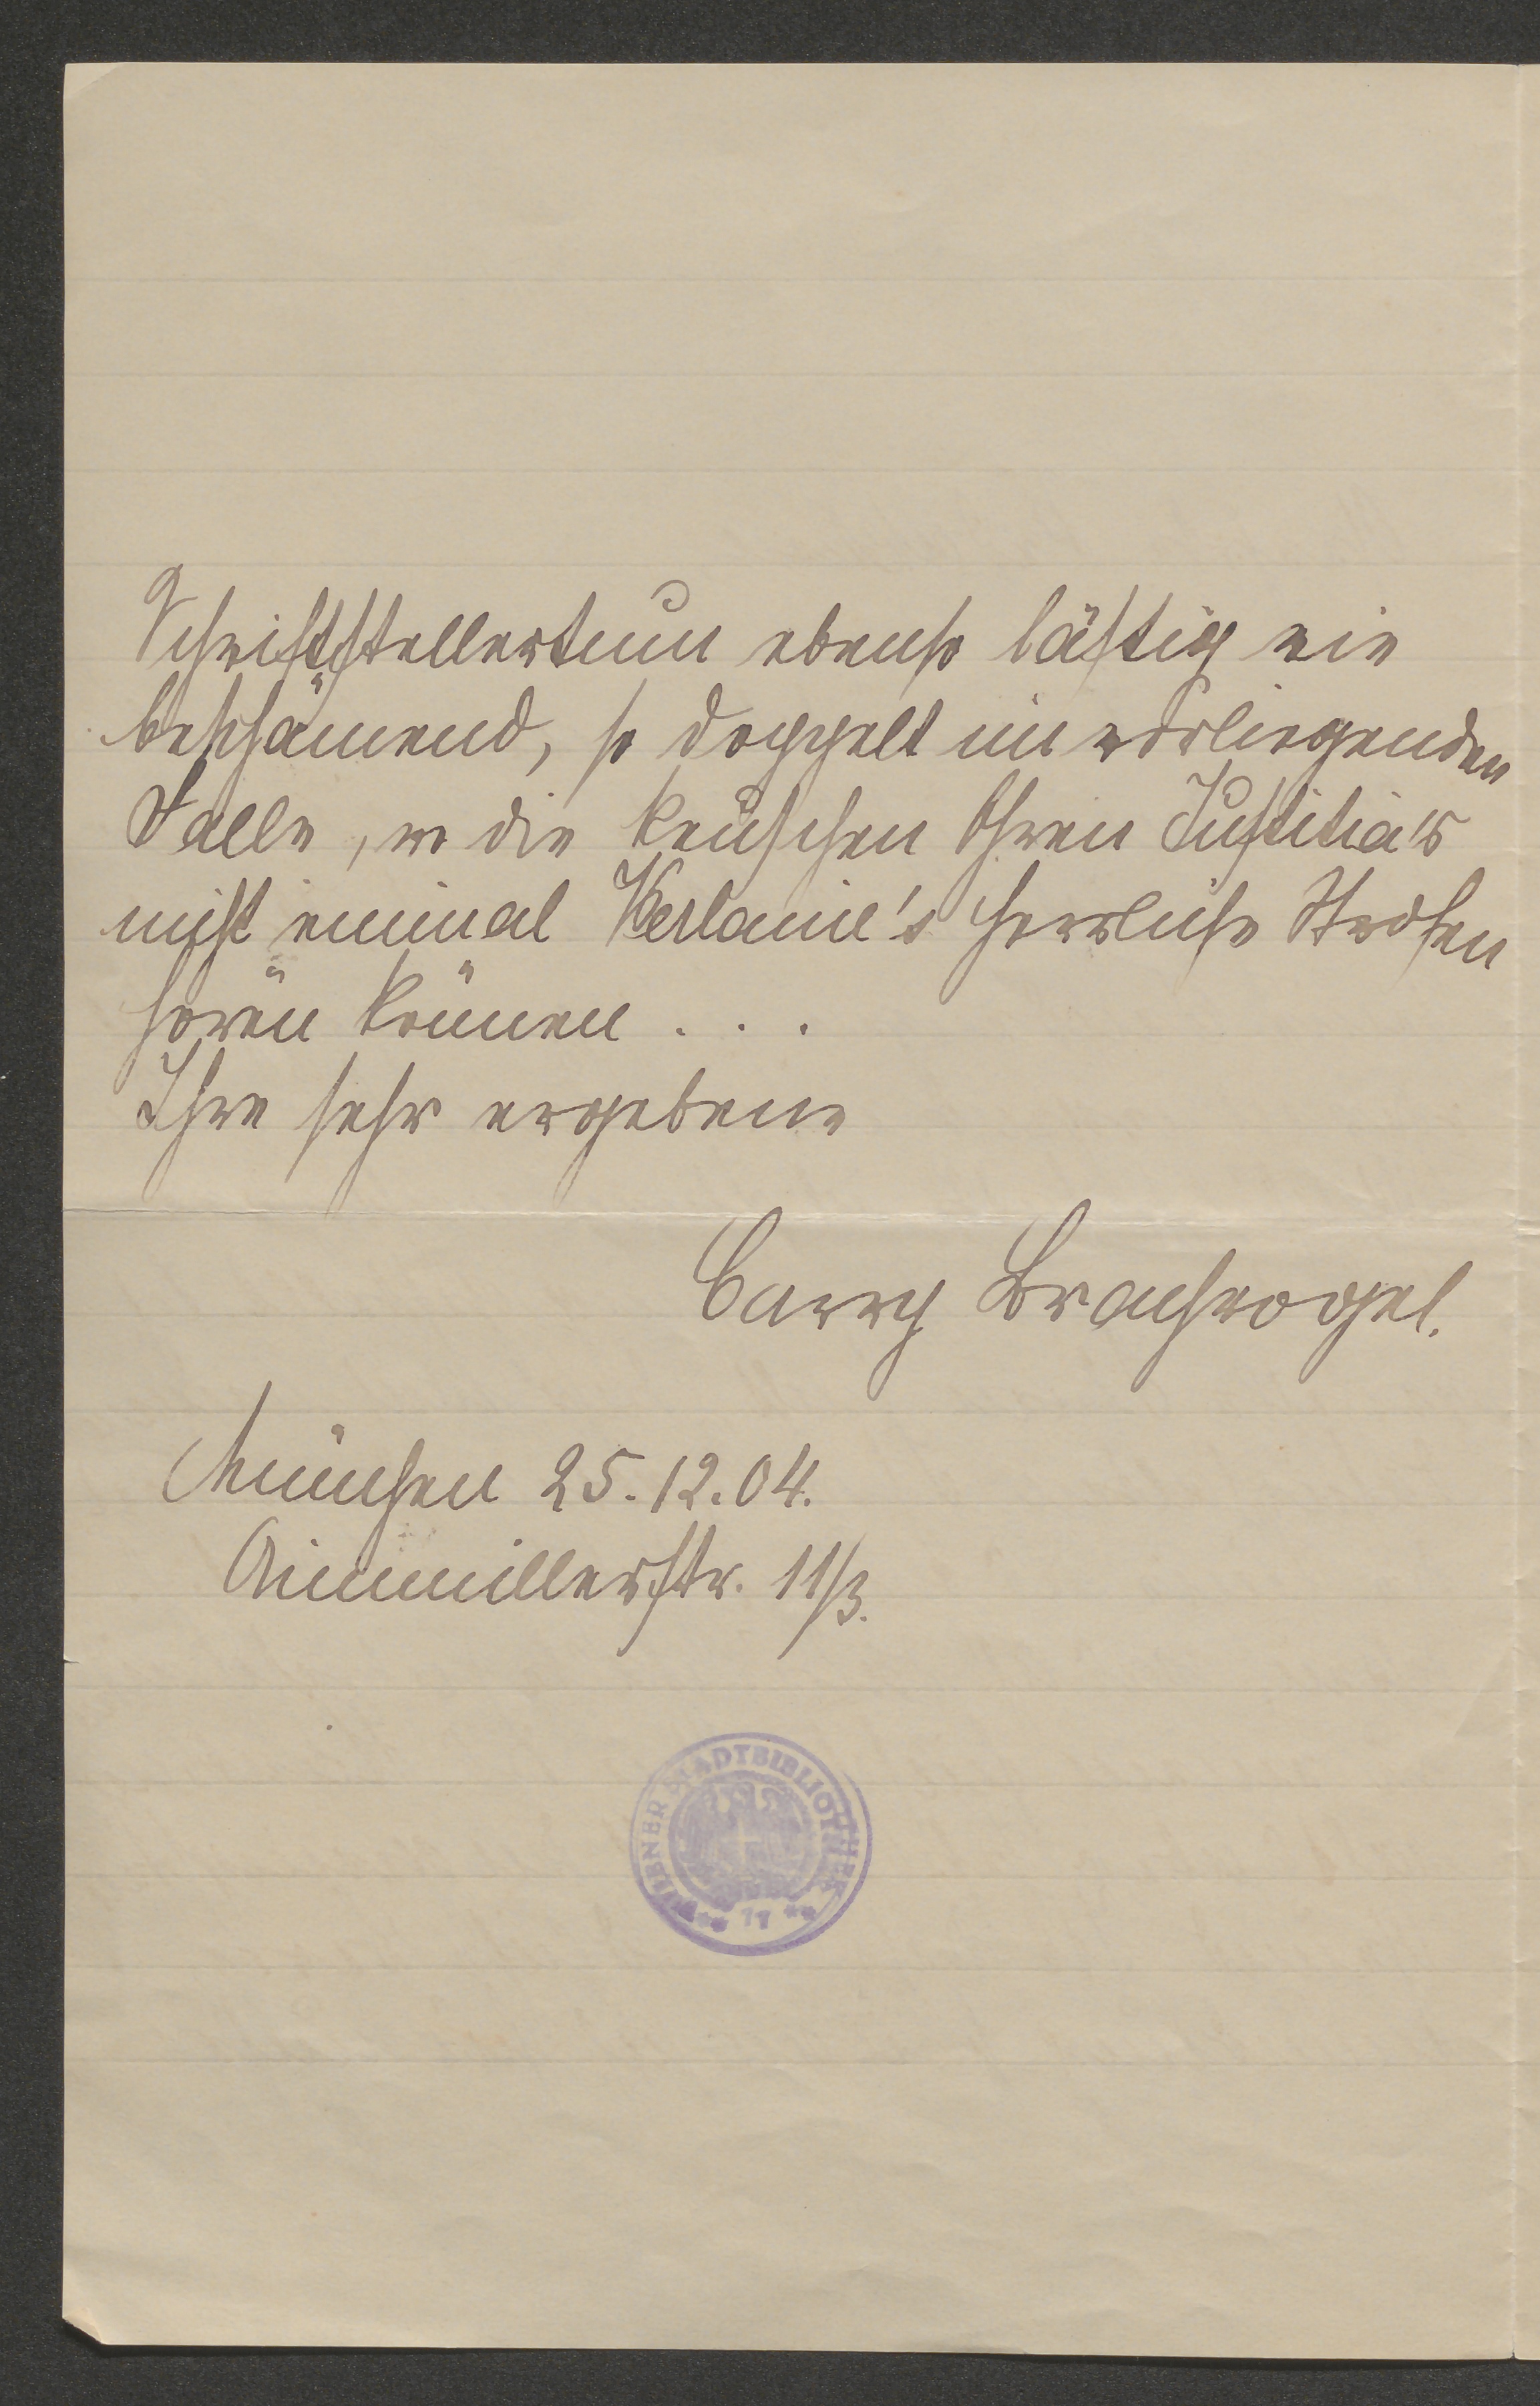 Schriftstellertum ebenso lästig wie
beschämend, so doppelt im vorliegenden
Falle, wo die keuschen Ohren Justitia's
nicht einmal Verlaine's herrliche Strofen
hören können . . .
Ihre sehr ergebene
Carry Brachvogel.
München 25.12.04.
Ainmillerstr. 11/3.
WIENER STADTBIBLIOTHEK